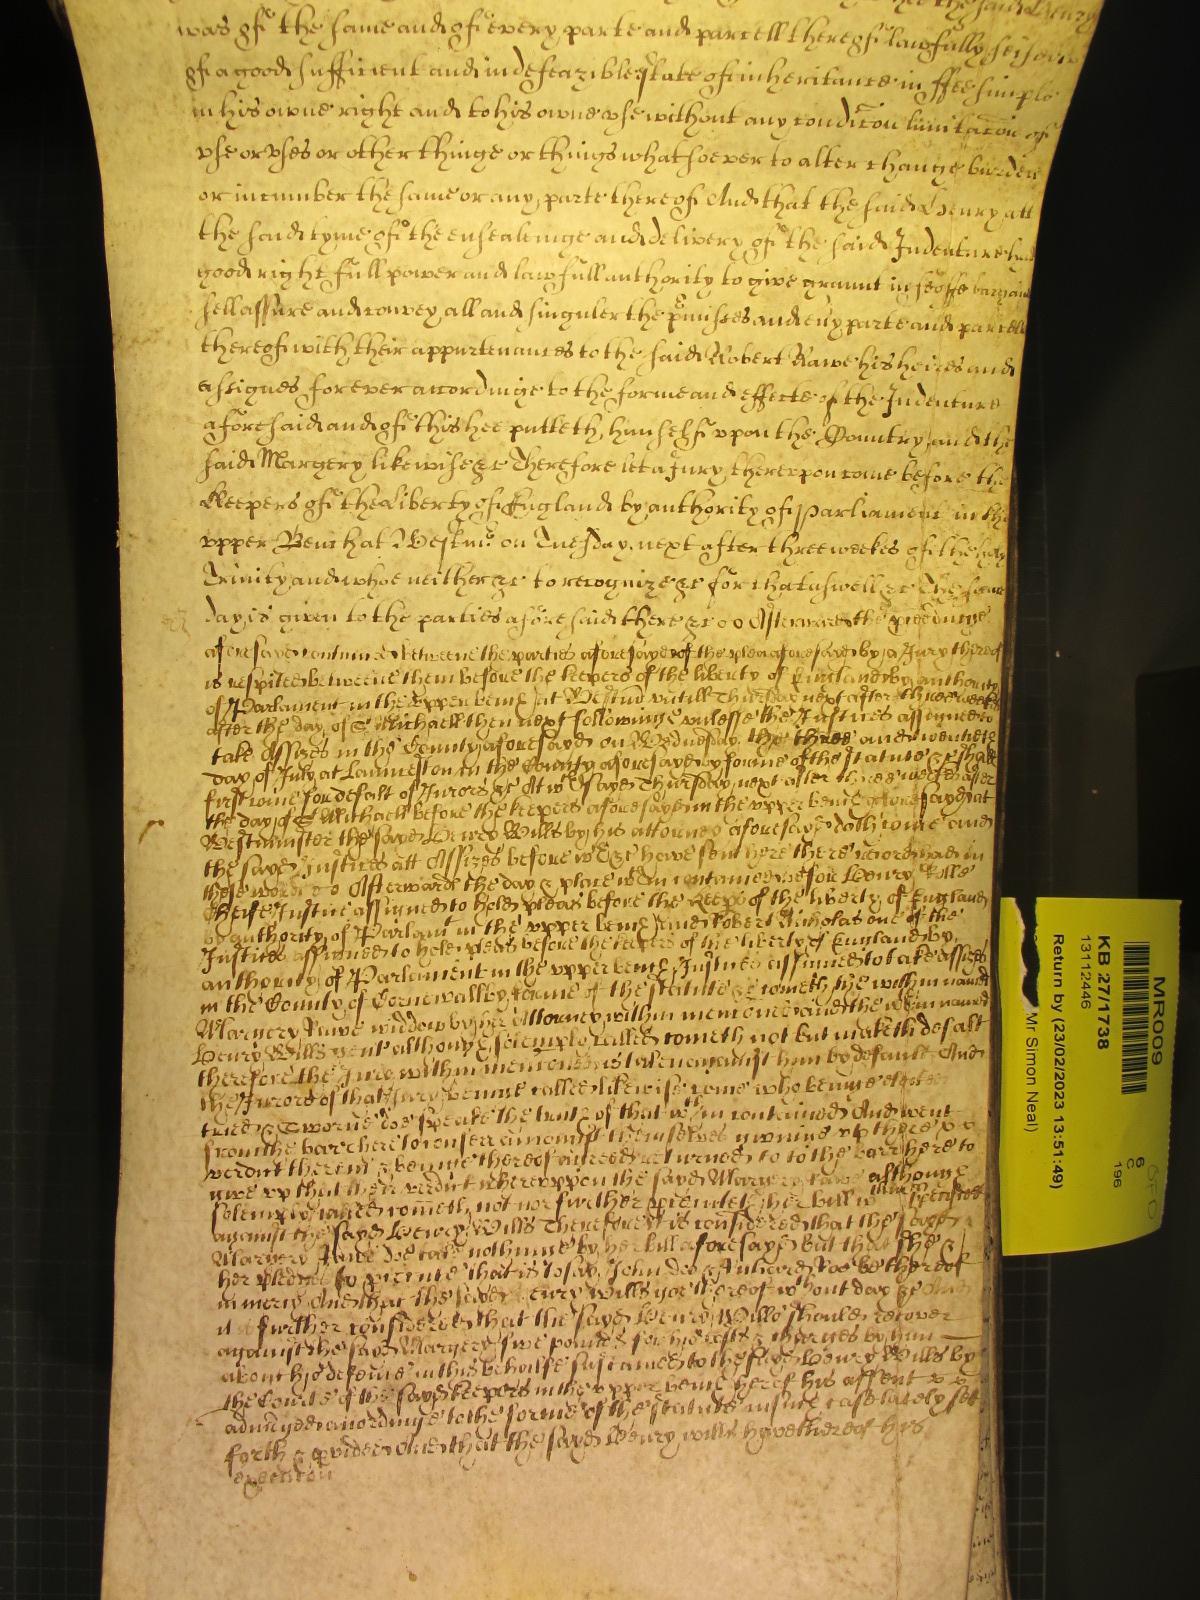 the said Henry
was of the same and of every parte and parcell thereof lawfully seised
of a good sufficient and indefeazible estate of inheritance in ffee simple
in his owne right and to his owne use without any condicõn limitacõn of
vse or vses or other thinge or things whatsoever to alter change burden
or incumber the same or any parte thereof And that the said Henry att
the said tyme of the ensealeinge and delivery of the said Indenture had
good right full power and lawfull authority to give graunt infeoffe bargaine
sell assure and convey all and singuler the pmisses and eu'y parte and parcell
thereof with their appurtenances to the said Robert Rawe his heires and
assignes for ever accordinge to the forme and effecte of the Indenture
aforesaid and of this hee putteth himself vpon the Country and the
said Margery likewise &c Therefore let a Jury therevpon come before the
Keepers of the Liberty of England by authority of Parliament in the
vpper Bench at Westm' on Tuesday next after three weekes of the holy
Trinity and whoe neither &c to recognize &c for that aswell &c The same
day is given to the parties aforesaid there &c Afterwards the
aforesayd continued betweene the parties aforesayd of the plea aforesayd by a Jury thereof
is respited betweene them before the keepers of the liberty of England by authority
of Parlament in the vpper bench at Westm' vntill Thursday next after three weekes
after the day of St Michaell then next followinge vnlesse the Justices assigned to
take Assizes in the County aforesayd on Wednesday the three and twentieth
day of July at Launceston in the County aforesayd by forme of the statute &c shall
first come for defalt of Jurors &c At wch sayd Thursday next after three weekes after
the day of St Michaell before the keepers aforesayd in the vpper bench aforesayd at
Westminster the sayd Henry Wills by his attorney aforesayd doth come and
the sayd Justices att Assizes before wch &c have sent here there record had in
these words Afterwards the day & place wthin contained before Henry Rolle
Cheife Justice assigned to hold pleas before the keeps of the liberty of England
by authority of Parlamt in the vpper bench and Robert Nicholas one of the
Justices assigned to hold pleas before the keepers of the liberty of England by
authority of Parlament in the vpper bench Justices assigned to take assizes
in the County of Cornewall by forme of the statute &c cometh the within named
Margery Rawe widdow by her Attorney within menconed and the wthin named
Henry Wills gent although solemply called cometh not but maketh defalt
therefore the Jury within menconed is taken against him by default And
the Jurors of that Jury beinge called likewise come who beinge elected
tried & sworne doe speake the truth of that wthin contained And went
from the barr here to conferr amongst themselves of giving vp there
verdict therein & beinge thereof agreed returned to the barr here to
give vp that their verdict wherevppon the sayd Margery Rawe although
solemply called cometh not nor further psecuteth her bill
against the sayd Henry Wills Therefore it is considered that the sayd
Margery Rawe doe take nothinge by her bill aforesayd But that she &
her pledges to psecute that is to say John Doe & Richard Roe be thereof
in mercy And that the sayd Henry Wills goe thereof wthout day &c And
it is further considered that the sayd Henry Wills should recover
against the sayd Margery five pounds for his costs & charges by him
about his defence in this behalfe sustained to the sayd Henry Wills by
the Courte of the sayd keepers in the vpper bench here of his assent
adiudged accordinge to the forme of the statute in such case lately sett
forth & pvided And that the sayd Henry Wills have thereof his
execution
MR009
KB 27/1738
13112446
6
C
196
Return by (23/02/2023 13:51:49)
Mr Simon Neal)